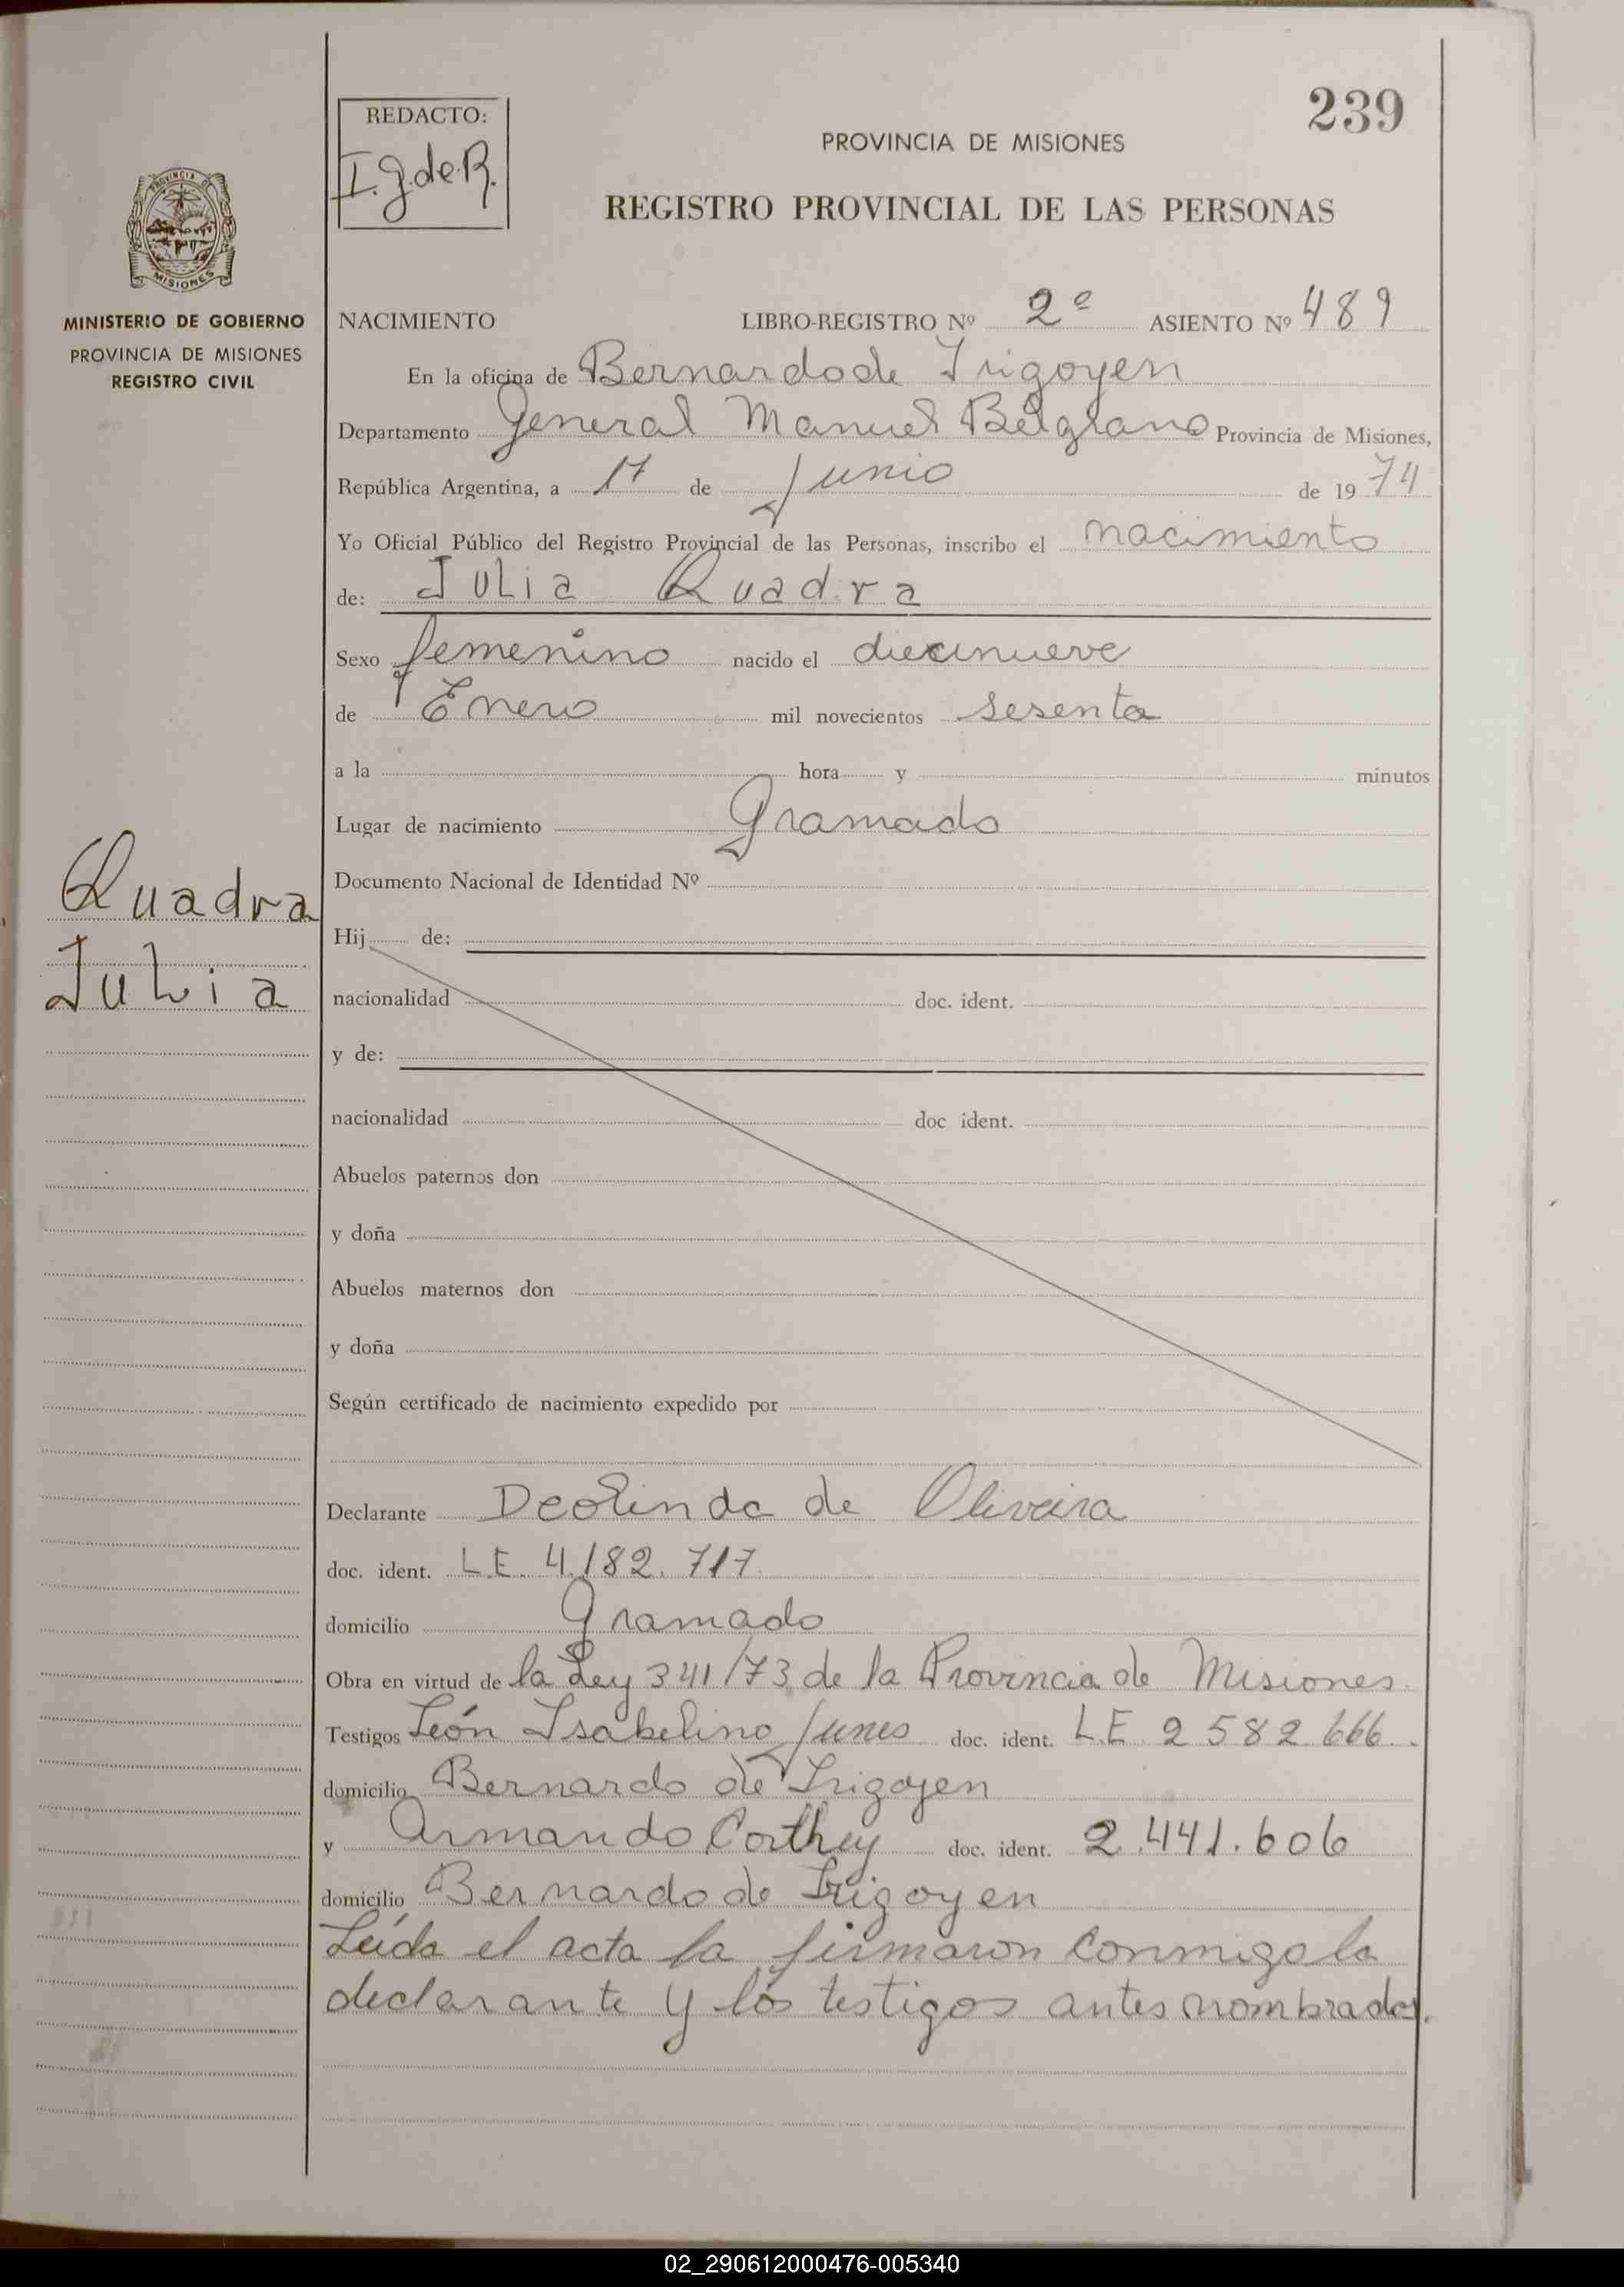 239
REDACTO:
I.g.de.R.
PROVINCIA DE MISIONES
REGISTRO PROVINCIAL DE LAS PERSONAS
PROVINCIA DE
MISIONES
MINISTERIO DE GOBIERNO
PROVINCIA DE MISIONES
REGISTRO CIVIL
NACIMIENTO LIBRO-REGISTRO Nº 2º ASIENTO Nº 489
En la oficina de Bernardo de Irigoyen
Departamento General Manuel Belgrano Provincia de Misiones,
República Argentina, a 17 de Junio de 1974
Yo Oficial Público del Registro Provincial de las Personas, inscribo el nacimiento
de: Julia Quadra
Sexo femenino nacido el diecinueve
de Enero mil novecientos sesenta
a la hora y minutos
Lugar de nacimiento Gramado
Quadra
Julia
Documento Nacional de Identidad Nº
Hij de:
nacionalidad doc. ident.
y de:
nacionalidad doc ident.
Abuelos paternos don
y doña
Abuelos maternos don
y doña
Según certificado de nacimiento expedido por
Declarante Deolinda de Oliveira
doc. ident. L.E. 4.182.717.
domicilio Gramado
Obra en virtud de la Ley 341/73 de la Provincia de Misiones.
Testigos León Isabelino Junes doc. ident. L.E. 2 582.666.
domicilio Bernardo de Irigoyen
y Armando Corthey doc. ident. 2.441.606
domicilio Bernardo de Irigoyen
Leída el acta la firmaron conmigo la
declarante y los testigos antes nombrados.
02_290612000476-005340